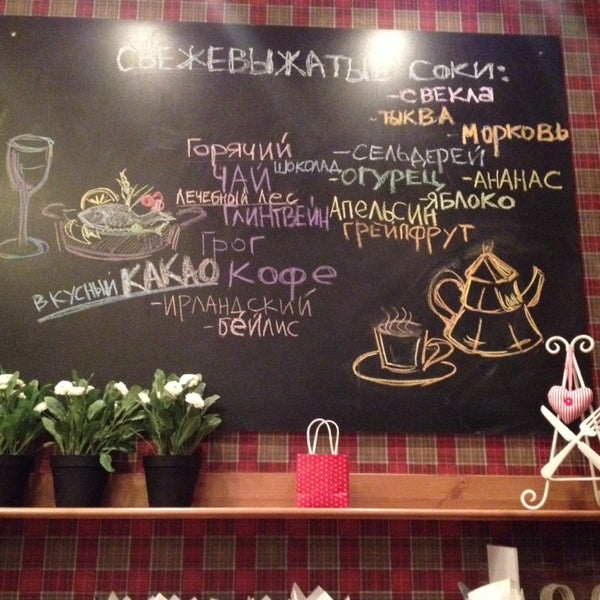 СВЕЖЕВЫЖАТЫЕ СОКИ:
-СВЕКЛА
-ТЫКВА
-МОРКОВЬ
-СЕЛЬДЕРЕЙ
-ОГУРЕЦ -АНАНАС
ЯБЛОКО
АПЕЛЬСИН
ГРЕЙПФРУТ
ГОРЯЧИЙ
ШОКОЛАД
ЧАЙ
ЛЕЧЕБНЫЙ ЛЕС
ГЛИНТВЕЙН
ГРОГ
ВКУСНЫЙ КАКАО
КОФЕ
-ИРЛАНДСКИЙ
-БЕЙЛИС